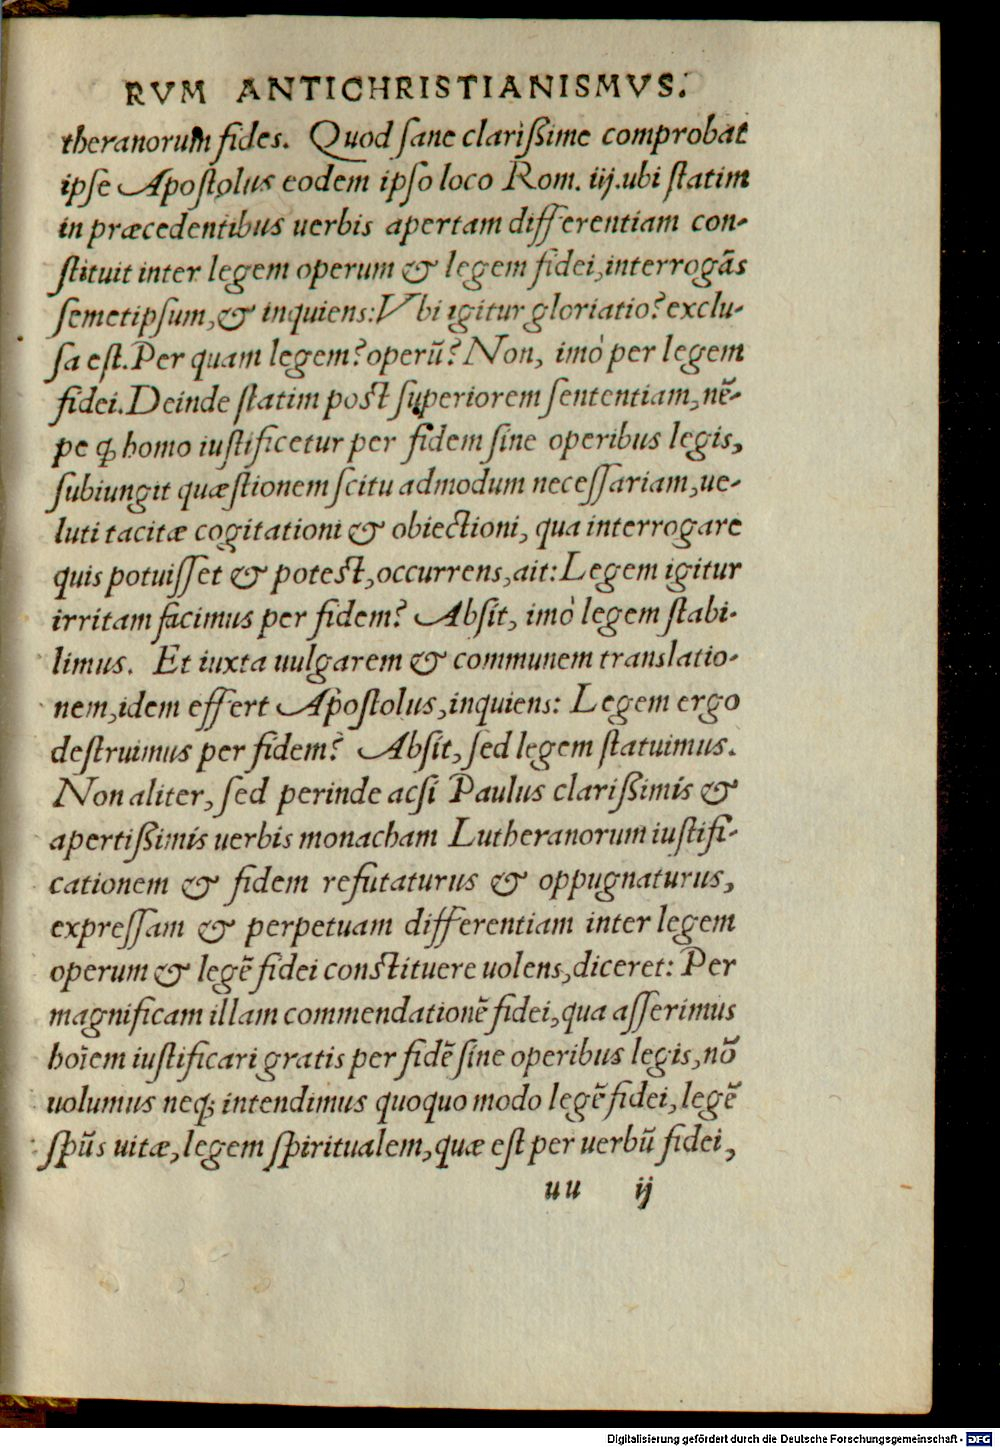 RVM ANTICHRISTIANISMVS.
theranorum fides. Quod sane clarißime comprobat
ipse Apostolus eodem ipso loco Rom. iij. ubi statim
in præcedentibus uerbis apertam differentiam con-
stituit inter legem operum & legem fidei, interrogãs
semetipsum, & inquiens: Vbi igitur gloriatio? exclu-
sa est. Per quam legem? operũ? Non, imò per legem
fidei. Deinde statim post superiorem sententiam, nẽ-
pe ꝙ homo iustificetur per fidem sine operibus legis,
subiungit quæstionem scitu admodum necessariam, ue-
luti tacitæ cogitationi & obiectioni, qua interrogare
quis potuisset & potest, occurrens, ait: Legem igitur
irritam facimus per fidem? Absit, imò legem stabi-
limus. Et iuxta uulgarem & communem translatio-
nem, idem effert Apostolus, inquiens: Legem ergo
destruimus per fidem? Absit, sed legem statuimus.
Non aliter, sed perinde acsi Paulus clarißimis &
apertißimis uerbis monacham Lutheranorum iustifi-
cationem & fidem refutaturus & oppugnaturus,
expressam & perpetuam differentiam inter legem
operum & legẽ fidei constituere uolens, diceret: Per
magnificam illam commendationẽ fidei, qua asserimus
hoĩem iustificari gratis per fidẽ sine operibus legis, nõ
uolumus neq; intendimus quoquo modo legẽ fidei, legẽ
spũs uitæ, legem spiritualem, quæ est per uerbũ fidei,
uu ij
Digitalisierung gefördert durch die Deutsche Forschungsgemeinschaft - DFG